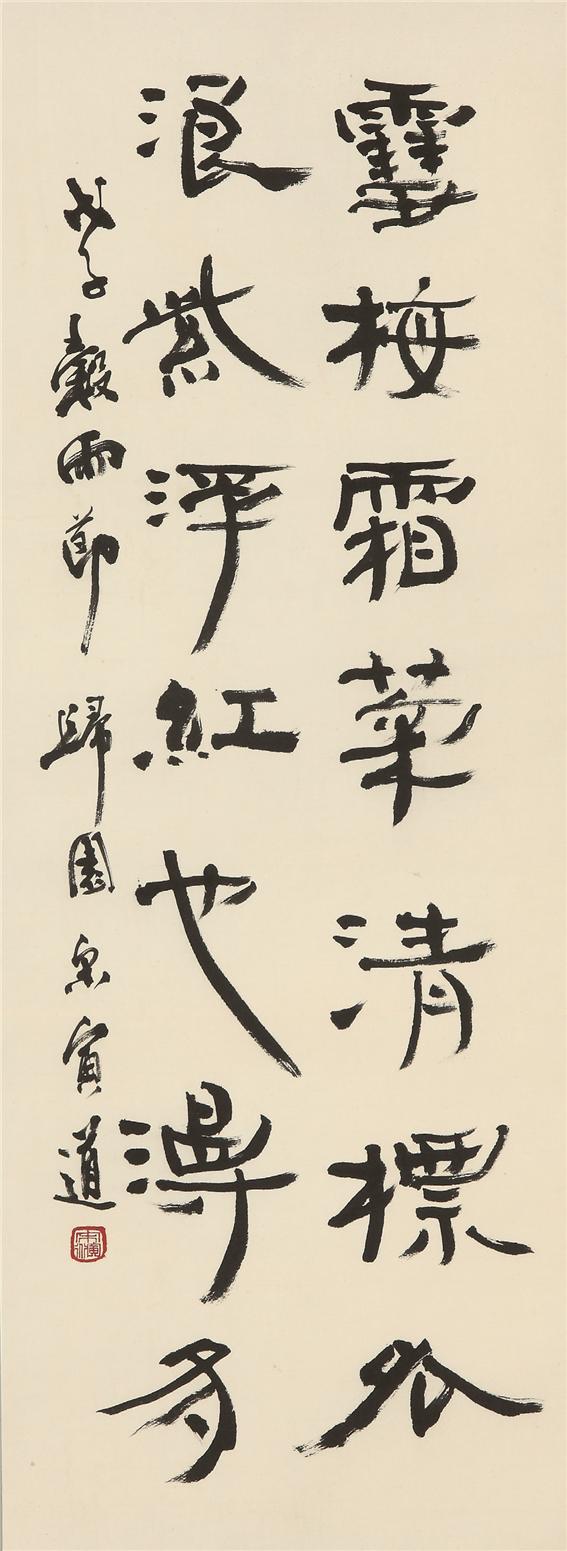 雪梅霜菊清標外
浪紫浮紅也漫多
戊子穀雨節 歸園 宋寅道